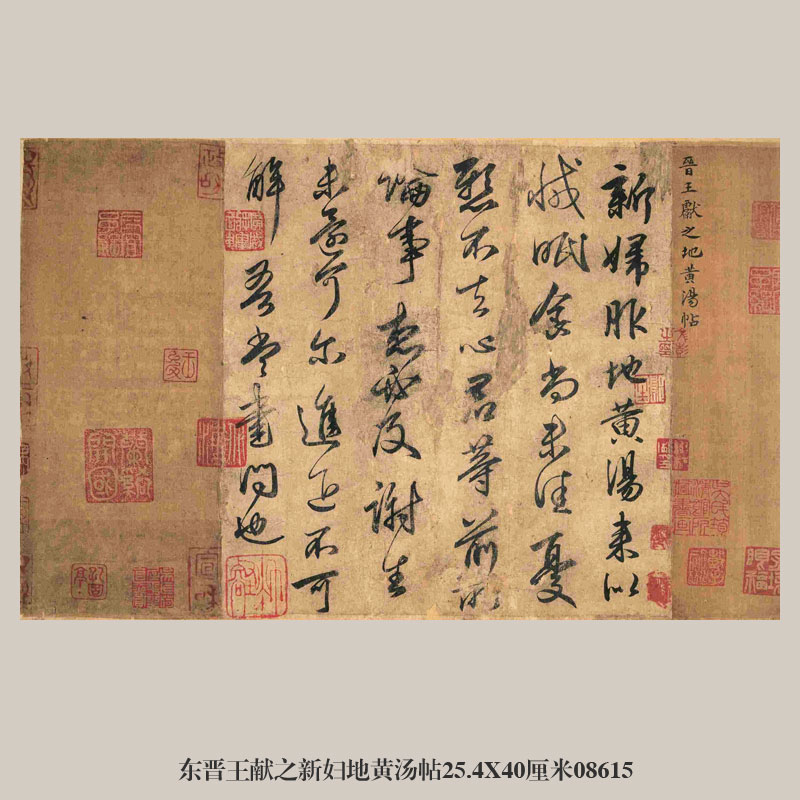 晋王獻之地黄湯帖
新婦服地黄湯来似
減眠食尚未佳憂
懸不去心君等前所
論事想必及謝生
未還可尔進退不可
解吾當書問也
东晋王献之新妇地黄汤帖25.4X40厘米08615